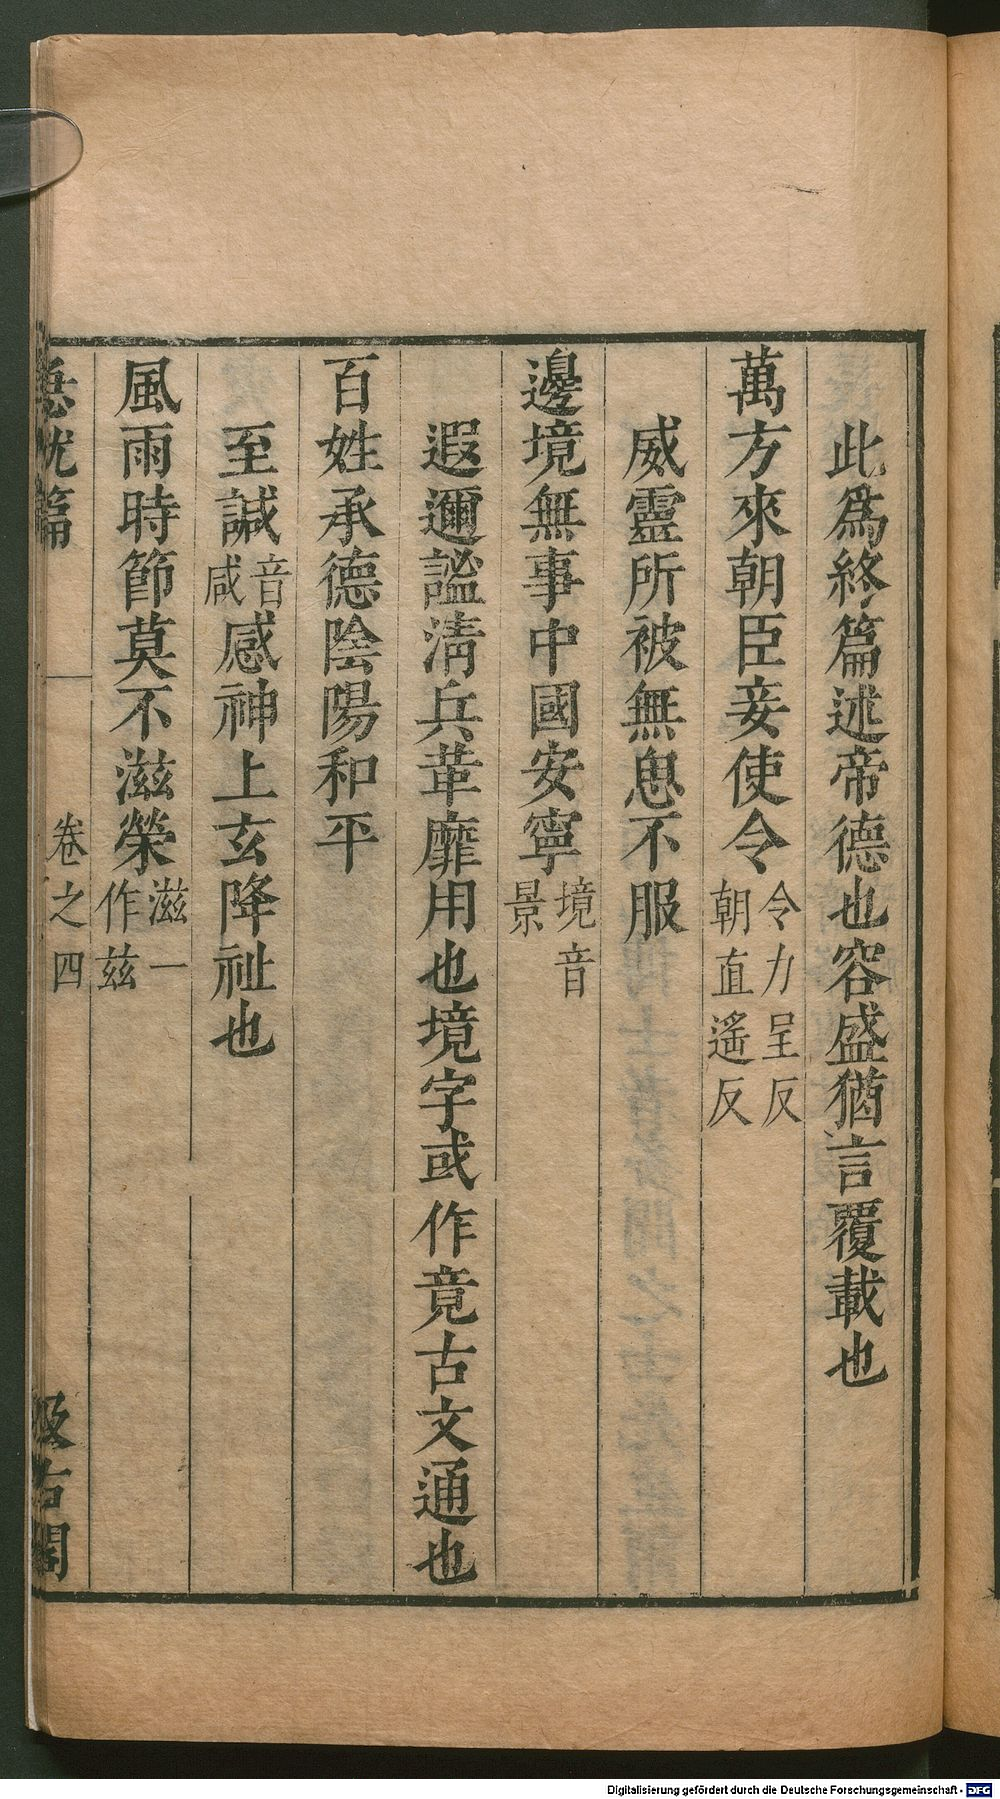 此爲終篇述帝德也容盛猶言覆載也
萬方來朝臣妾使令令力呈反朝直遙反
威靈所被無思不服
邊境無事中國安寧境音景
遐邇謐淸兵革靡用也境字或作竟古文通也
百姓承德陰陽和平
至諴音咸感神上玄降祉也
風雨時節莫不滋榮滋一作兹
急就篇 卷之四 汲古閣
Digitalisierung gefördert durch die Deutsche Forschungsgemeinschaft - DFG